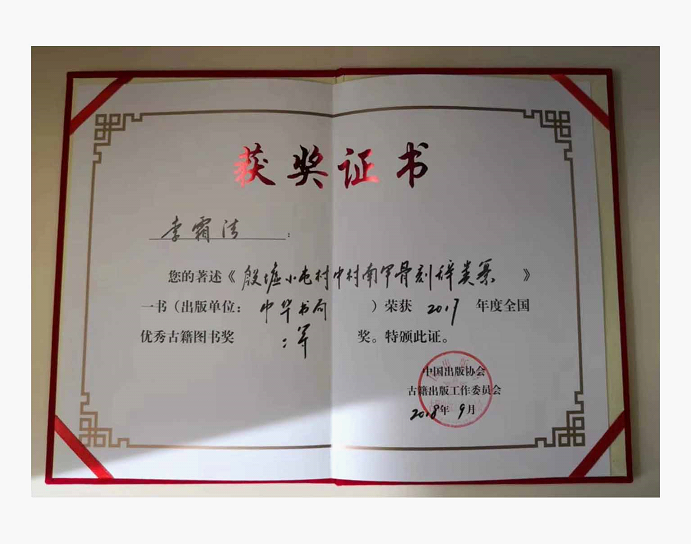 获奖证书
李霜洁：
您的著述《殷墟小屯村中村南甲骨刻辞类纂》
一书（出版单位：中华书局）荣获 2017 年度全国
优秀古籍图书奖 二等 奖。特颁此证。
中国出版协会
古籍出版工作委员会
2018年 9月